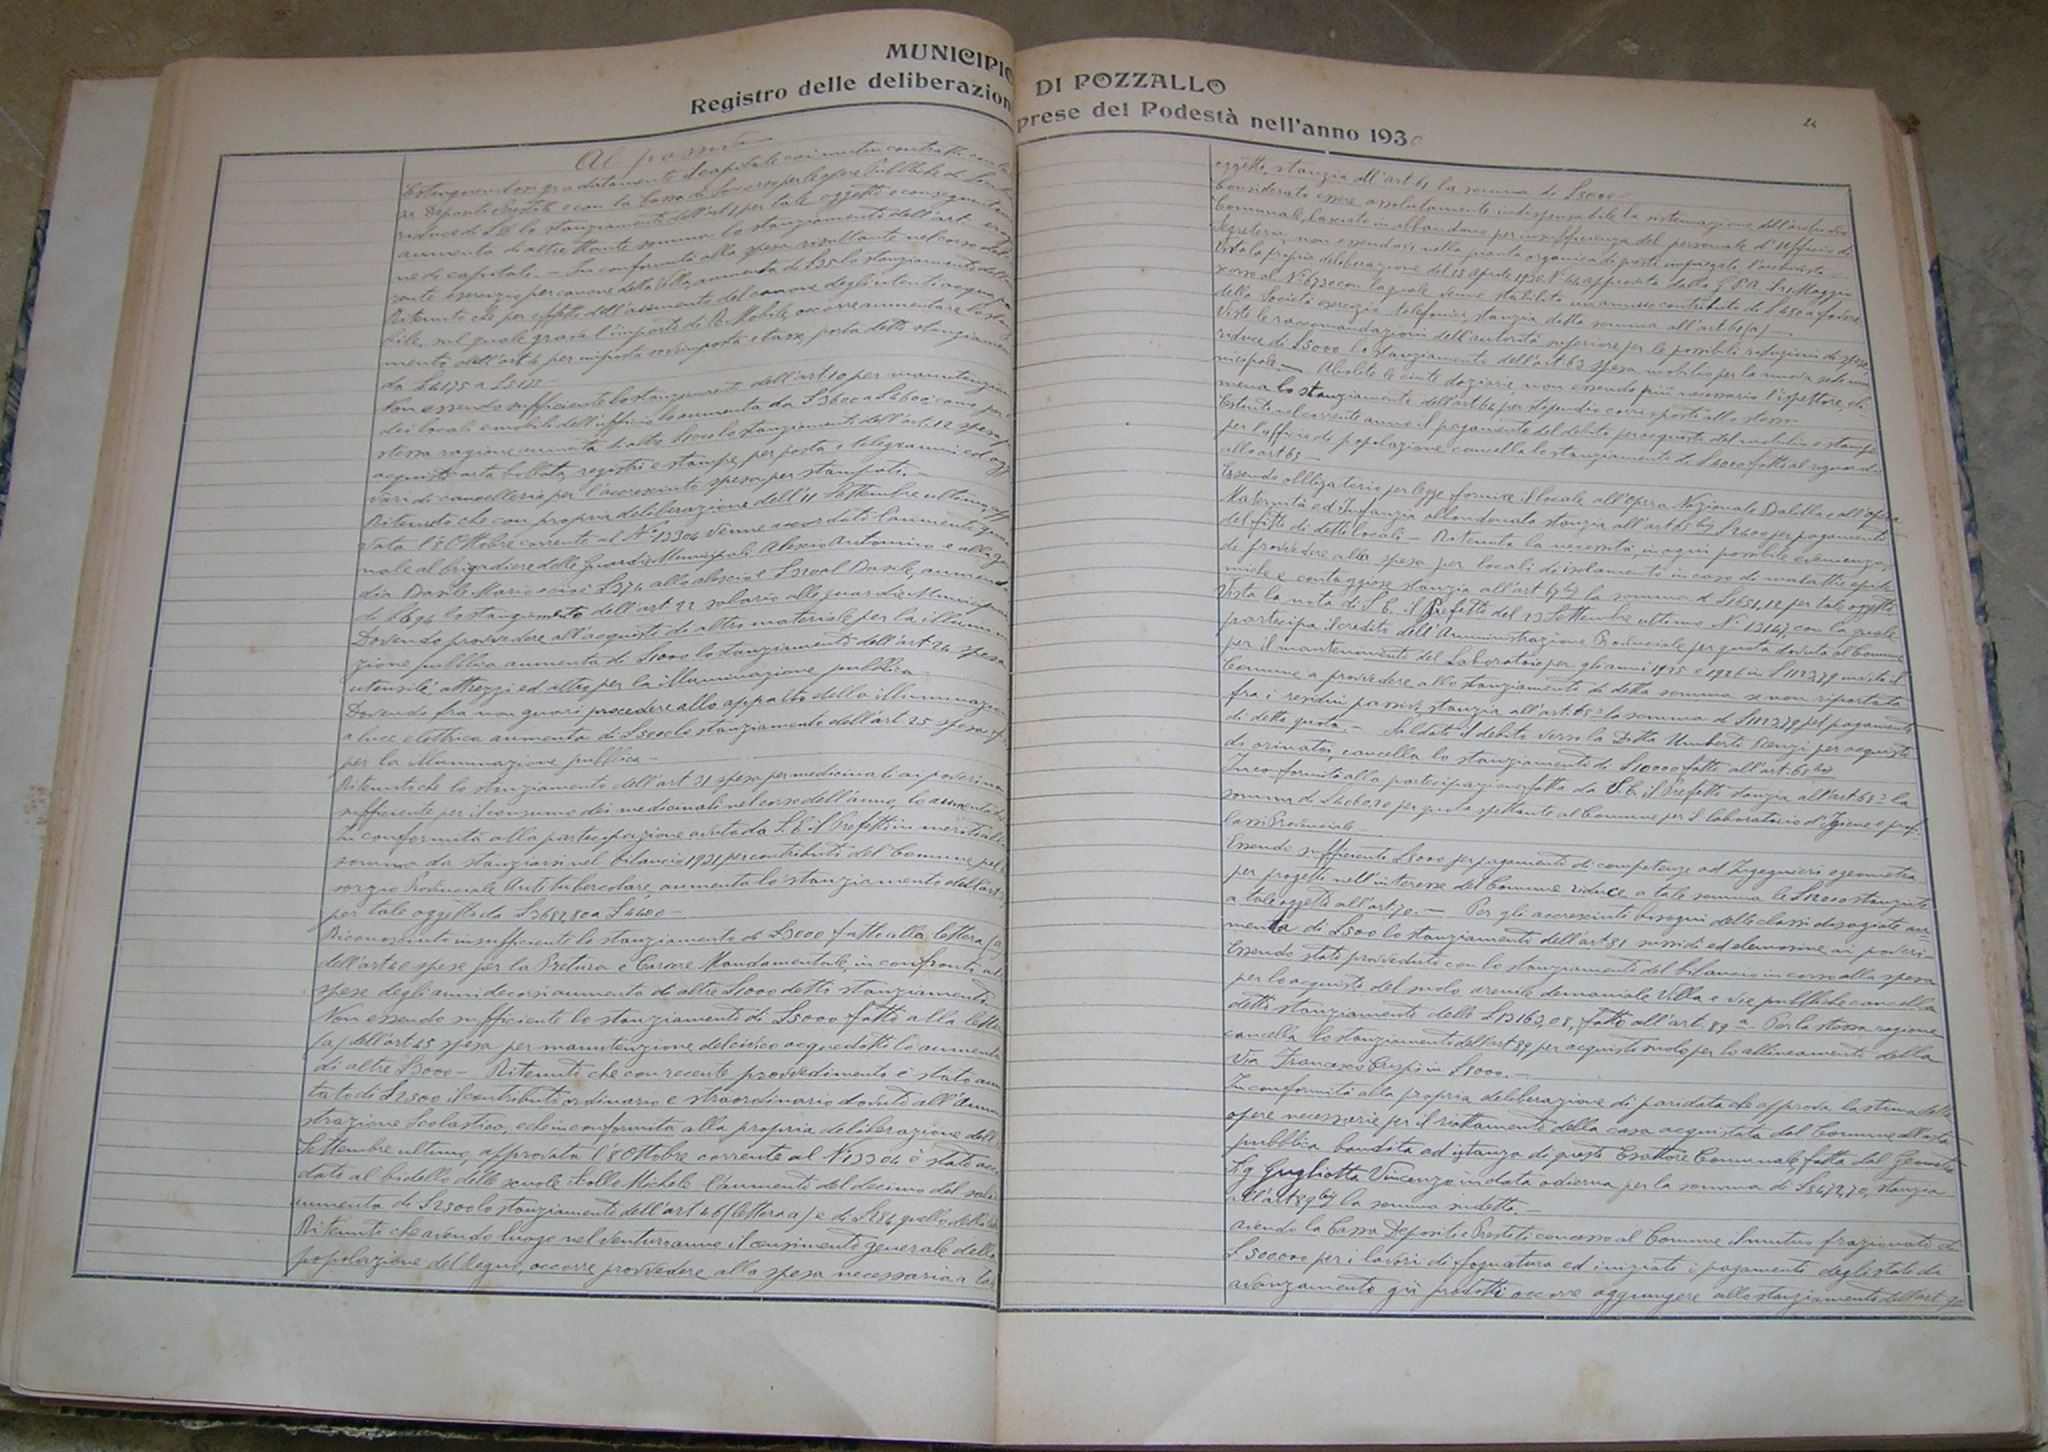 MUNICIPIO DI POZZALLO
Registro delle deliberazioni prese del Podestà nell'anno 1930
24
Al passivo
Estinguendosi gradatamente il capitale coi mutui contratti con la
sa Depositi Prestiti e con la Cassa di Soccorso per le opere Pubbliche di
riduce di lo stanziamento dell'art per tale oggetto e conseguentem
aumenta di altre tante somma lo stanziamento dell'art.
ne di capitale. — In conformità alla spesa risultante nel corso del
rente esercizio per canone della Villa aumenta di £ 25 lo stanziamento dell'
Ritenuto che per effetto dell'aumento del canone degli utenti acqua
bile, sul quale grava l'importo di R. Mobile, occorre aumentare lo stan
mento dell'art 4 per imposta sovrimposta e tasse, porta detto stanziamen
da £ 4175 a £ 5175
Non essendo sufficiente lo stanziamento dell'art. 10 per manutenzione
dei locali e mobili dell'ufficio lo aumenta da £ 3600 a £ 4600; come per
stessa ragione aumenta di altre £ 1000 lo stanziamento dell'art. 12 spesa p
acquisto carta bollata, registri e stampe, per posta e telegrammi ed ogg
vari di cancelleria per l'accresciuta spesa per stampati. —
Ritenuto che con propria deliberazione dell'11 Settembre ultimo, app
vata l'8 Ottobre corrente al N° 13304 venne accordato l'aumento
nale al brigadiere delle guardie Municipali Alescio Antonino e alla gua
dia Basile Mario e cioè £ 374 allo Alescio e £ 320 al Basile, aumenta
di £ 694 lo stanziamento dell'art. 22 salario alle guardie Municipali
Dovendo provvedere all'acquisto di altro materiale per la illumina
zione pubblica aumenta di £ 1000 lo stanziamento dell'art. 24 spesa
utensili attrezzi ed altro per la illuminazione pubblica —
Dovendo fra non guari procedere allo appalto della illuminazione
a luce elettrica aumenta di £ 5000 lo stanziamento dell'art. 25 spesa
per la illuminazione pubblica —
Ritenuto che lo stanziamento dell'art 31 spesa per medicinali ai poveri
sufficiente per il consumo dei medicinali nel corso dell'anno, lo aumenta
In conformità alla partecipazione avuta da S. E. il Prefetto in merito alla
somma da stanziarsi nel bilancio 1931 per contributo del Comune pel
sorzio Provinciale Antitubercolare, aumenta lo stanziamento dell'art
per tale oggetto da £ 3682,80 a £ 4400 —
Riconosciuto insufficiente lo stanziamento di £ 3000 fatto alla lettera (a)
dell'art spese per la Pretura e Carcere Mandamentale, in confronto alle
spese degli anni decorsi aumenta di altre £ 1000 detto stanziamento.
Non essendo sufficiente lo stanziamento di £ 5000 fatto alla lettera
(a) dell'art 45 spesa per manutenzione del civico acquedotto lo aumenta
di altre £ 3000 — Ritenuto che con recente provvedimento è stato aum
tato di £ 2500 il contributo ordinario e straordinario dovuto all'Ammini
strazione Scolastica, e che in conformità alla propria deliberazione dell'
Settembre ultimo, approvata l'8 Ottobre corrente al N° 13304 è stato accor
dato al bidello delle scuole Michele l'aumento del decimo del salario
aumenta di £ 2500 lo stanziamento dell'art 46 (lettera a) e di £ 284 quello della
Ritenuto che avendo luogo nel venturo anno il censimento generale della
popolazione del Regno, occorre provvedere alla spesa necessaria a tale
oggetto, stanzia all'art 61 la somma di £ 3000 —
Considerato essere assolutamente indispensabile la sistemazione dell'archivio
Comunale, lasciato in abbandono per insufficienza del personale d'Ufficio di
Segreteria, non essendovi nella pianta organica di posto impiegato, l'archivista —
Vista la propria deliberazione del 18 Aprile 1930 N° 44 approvata dalla G. P. A. Maggio
scorso al N° 6730 con la quale venne stabilito un annuo contributo di £ 450 a favore
della Società esercizi telefonici, stanzia detta somma all'art. 61 (a) —
Viste le raccomandazioni dell'autorità superiore per le possibili riduzioni di spese,
riduce di £ 5000 lo stanziamento dell'art 63 spesa mobilio per la nuova sede mu
nicipale. — Abolite le cinte daziarie, non essendo più necessario l'ispettore, eli
mina lo stanziamento dell'art 64 per stipendio corrisposto allo stesso
Estinto nel corrente anno il pagamento del debito per acquisto del mobilio e stampe
per l'ufficio di popolazione cancella lo stanziamento di £ 4000 fatto al riguardo
all'art 65 —
Essendo obbligatorio per legge fornire il locale all'Opera Nazionale Balilla e all'Opera
Maternità ed Infanzia abbandonata stanzia all'art. 65 bis £ 2400 per pagamento
del fitto di detti locali — Ritenuta la necessità, in ogni possibile evenienza,
di provvedere alla spesa per locali di isolamento in caso di malattie epide
miche e contagiose stanzia all'art. 67 bis la somma di £ 1651,12 per tale oggetto
Vista la nota di S. E. il Prefetto del 23 Settembre ultimo N° 13147, con la quale
partecipa il credito dell'Amministrazione Provinciale per quota dovuta al Comune
per il mantenimento del Laboratorio per gli anni 1925 e 1926 in £ 11237,9 invita il
Comune a provvedere allo stanziamento di detta somma se non riportata
fra i residui passivi, stanzia all'art. 68 la somma di £ 11237,9 pel pagamento
di detta quota. — Saldato il debito verso la Ditta Umberto Renzi per acquisto
di orinatoi, cancella lo stanziamento di £ 10000 fatto all'art. 68 bis
In conformità alla partecipazione fatta da S. E. il Prefetto stanzia all'art. 68 la
somma di £ per quota spettante al Comune per il laboratorio d'Igiene e profi
lassi Provinciale —
Essendo sufficiente £ 8000 per pagamento di competenze ad Ingegneri e geometra
per progetti nell'interesse del Comune riduce a tale somma le £ 12000 stanziate
a tale oggetto all'art 70. — Per gli accresciuti bisogni delle classi disagiate au=
menta di £ 500 lo stanziamento dell'art 81 sussidi ed elemosine ai poveri —
Essendo stato provveduto con lo stanziamento del bilancio in corso alla spesa
per lo acquisto del suolo arenile demaniale Villa e vie pubbliche cancella
detto stanziamento delle £ 13163,08, fatto all'art. 89 a — Per la stessa ragione
cancella lo stanziamento dell'art 89 per acquisto suolo per lo allineamento della
Via Francesco Crispi in £ 1000. —
In conformità alla propria deliberazione di pari data che approva la stima delle
opere necessarie per il riattamento della casa acquistata dal Comune all'asta
pubblica bandita ad istanza di questo Esattore Comunale, fatta dal Geometra
Sg. Gugliotta Vincenzo in data odierna per la somma di £ 5472,70, stanzia
all'art 89 bis la somma suddetta. —
Avendo la Cassa Depositi e Prestiti concesso al Comune il mutuo frazionato di
£ 500000 per i lavori di fognatura ed iniziato i pagamenti degli stati di
avanzamento già prodotti occorre aggiungere allo stanziamento dell'art. 90